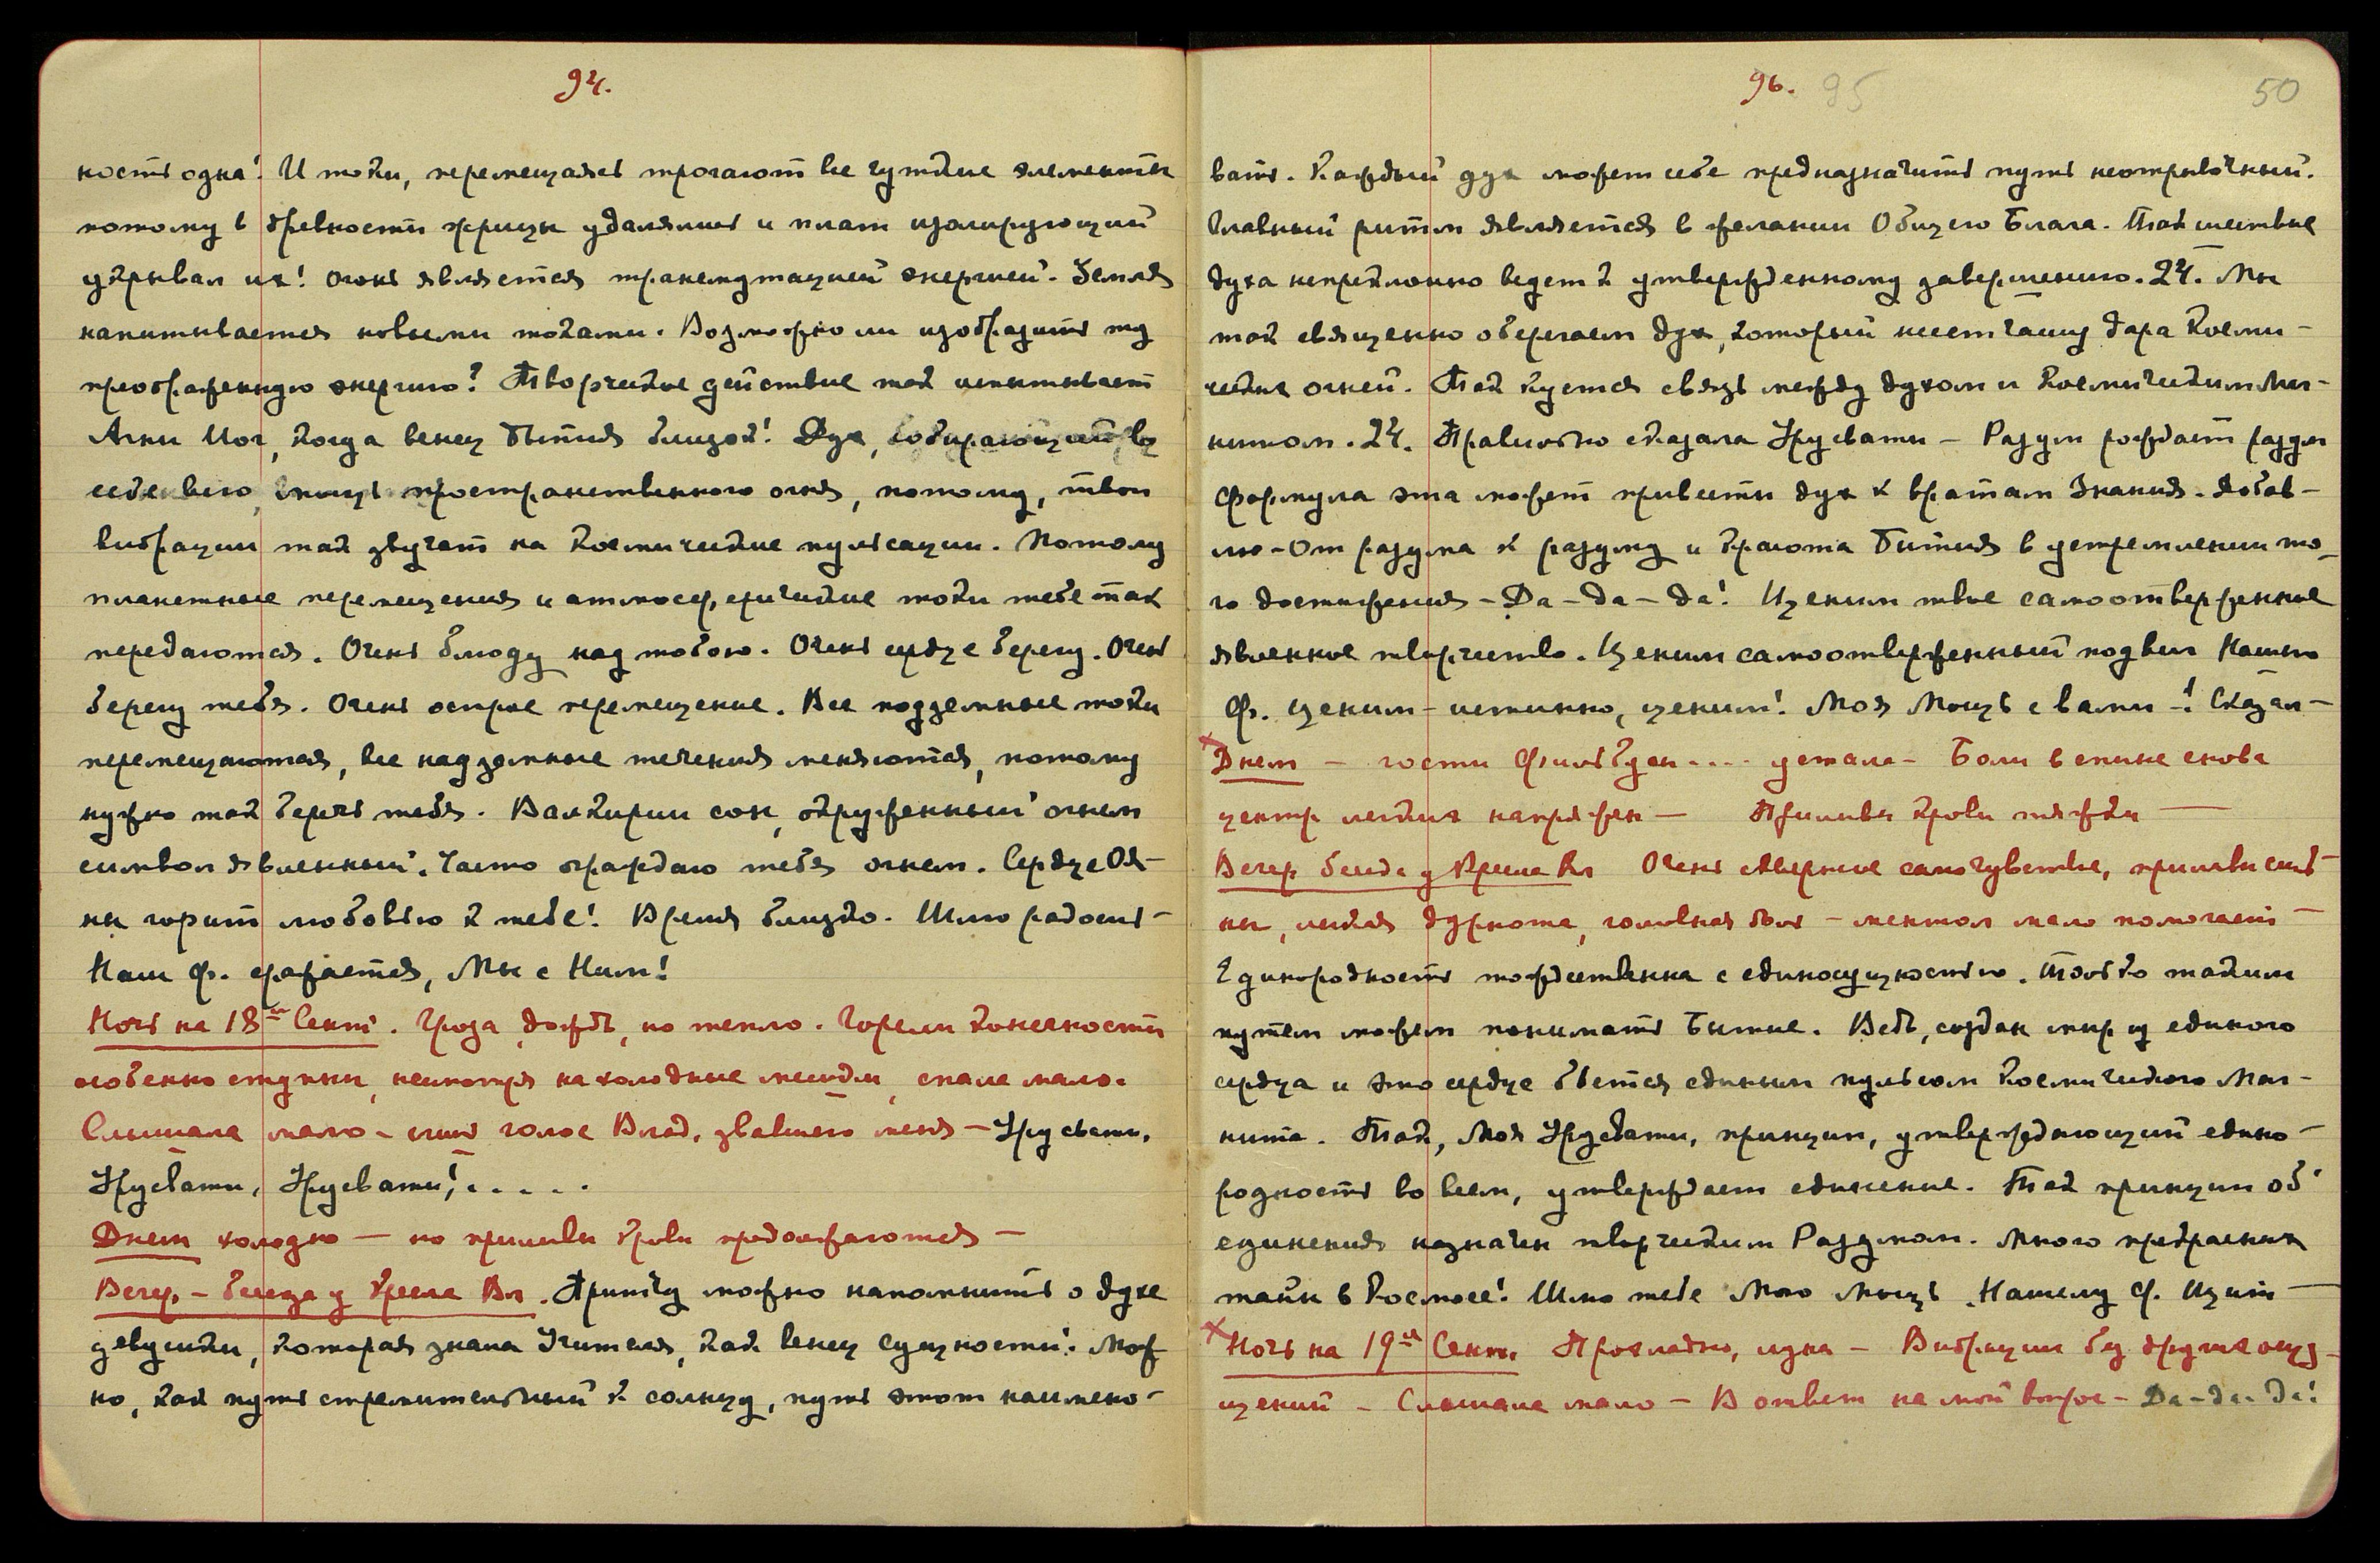 94.
ность одна! И токи, перемещаясь трогают все чуткие элементы
потому в древности жрицы удалялись и плат изолирующий
укрывал их! Огонь является трансмутацией энергией. Земля
напитывается новыми токами. Возможно ли изобразить ту
преображенную энергию? Творческое действие так испытывает
Агни Иог, когда венец Бытия близок! Дух,
себе всю мощь пространственного огня, потому, твои
вибрации так звучат на Космические пульсации. Потому
планетные перемещения и атмосферические токи тебе так
передаются. Очень блюду над тобою. Очень сердце берегу. Очень
берегу тебя. Очень острое перемещение. Все подземные токи
перемещаются, все надземные течения меняются, потому
нужно так беречь тебя. Валкирии сон, окруженный огнем
символ явленный. Часто ограждаю тебя огнем. Сердце Оя-
ны горит любовью к тебе! Время близко. Шлю радость -
Наш Ф. сражается, Мы с Ним!
Ночь на 18ое Сент. Гроза, дождь, но тепло. Горели конечности
особенно ступни, несмотря на холодные, спала мало.
Слышала мало - слыш голос Влад. звавшего меня - Урусвати,
Урусвати, Урусвати! . . . . .
Днем холодно — но приливы крови продолжаются —
Вечер. - беседа у кресла Вл. Притчу можно напомнить о духе
девушки, которая знала Учителя, как венец Сущности! Мож-
но, как путь стремительный к солнцу, путь этот наимено-
96. 95
50
вать. Каждый дух может себе предназначить путь неотрывочный.
Главный ритм является в желании Общего Блага. Так шествие
духа непреклонно ведет к утвержденному завершению. 24. Мы
так священно оберегаем дух, который несет чашу дара Косми-
ческих огней. Так куется связь между духом и Космическим Маг-
нитом. 24. Правильно сказала Урусвати - Разум рождает разум
формула эта может привести дух к вратам Знания. Добав-
лю - От разума к разуму и Красота Бытия в устремлении то-
го достижения - Да - да - да! Ценим твое самоотверженное
явленное творчество. Ценим самоотверженный подвиг Нашего
Ф. ценим - истинно, ценим! Моя Мощь с вами -! Сказал -
Днем - гости . . . . устала - Боли в спине снова
центр легких напряжен — Приливы крови тяжки —
Вечер беседа у кресла Вл Очень скверное самочувствие, приливы силь-
ны, легкая дурнота, головная боль - ментол мало помогает -
Единородность тождественна с единосущностью. Только таким
путем можем понимать Бытие. Ведь, создан мир из единого
сердца и это сердце бьется единым пульсом Космического Маг-
нита. Так, Моя Урусвати, принцип, утверждающий едино-
родность во всем, утверждает единение. Так принцип объ-
единения назначен творческим Разумом. Много прекрасных
тайн в Космосе! Шлю тебе Мою Мощь. Нашему Ф. Щит —
Ночь на 19ое Сент. Прохладно, луна - Вибрации без других ощу-
щений - Слышала мало - В ответ на мой вопрос - Да - да - Да!